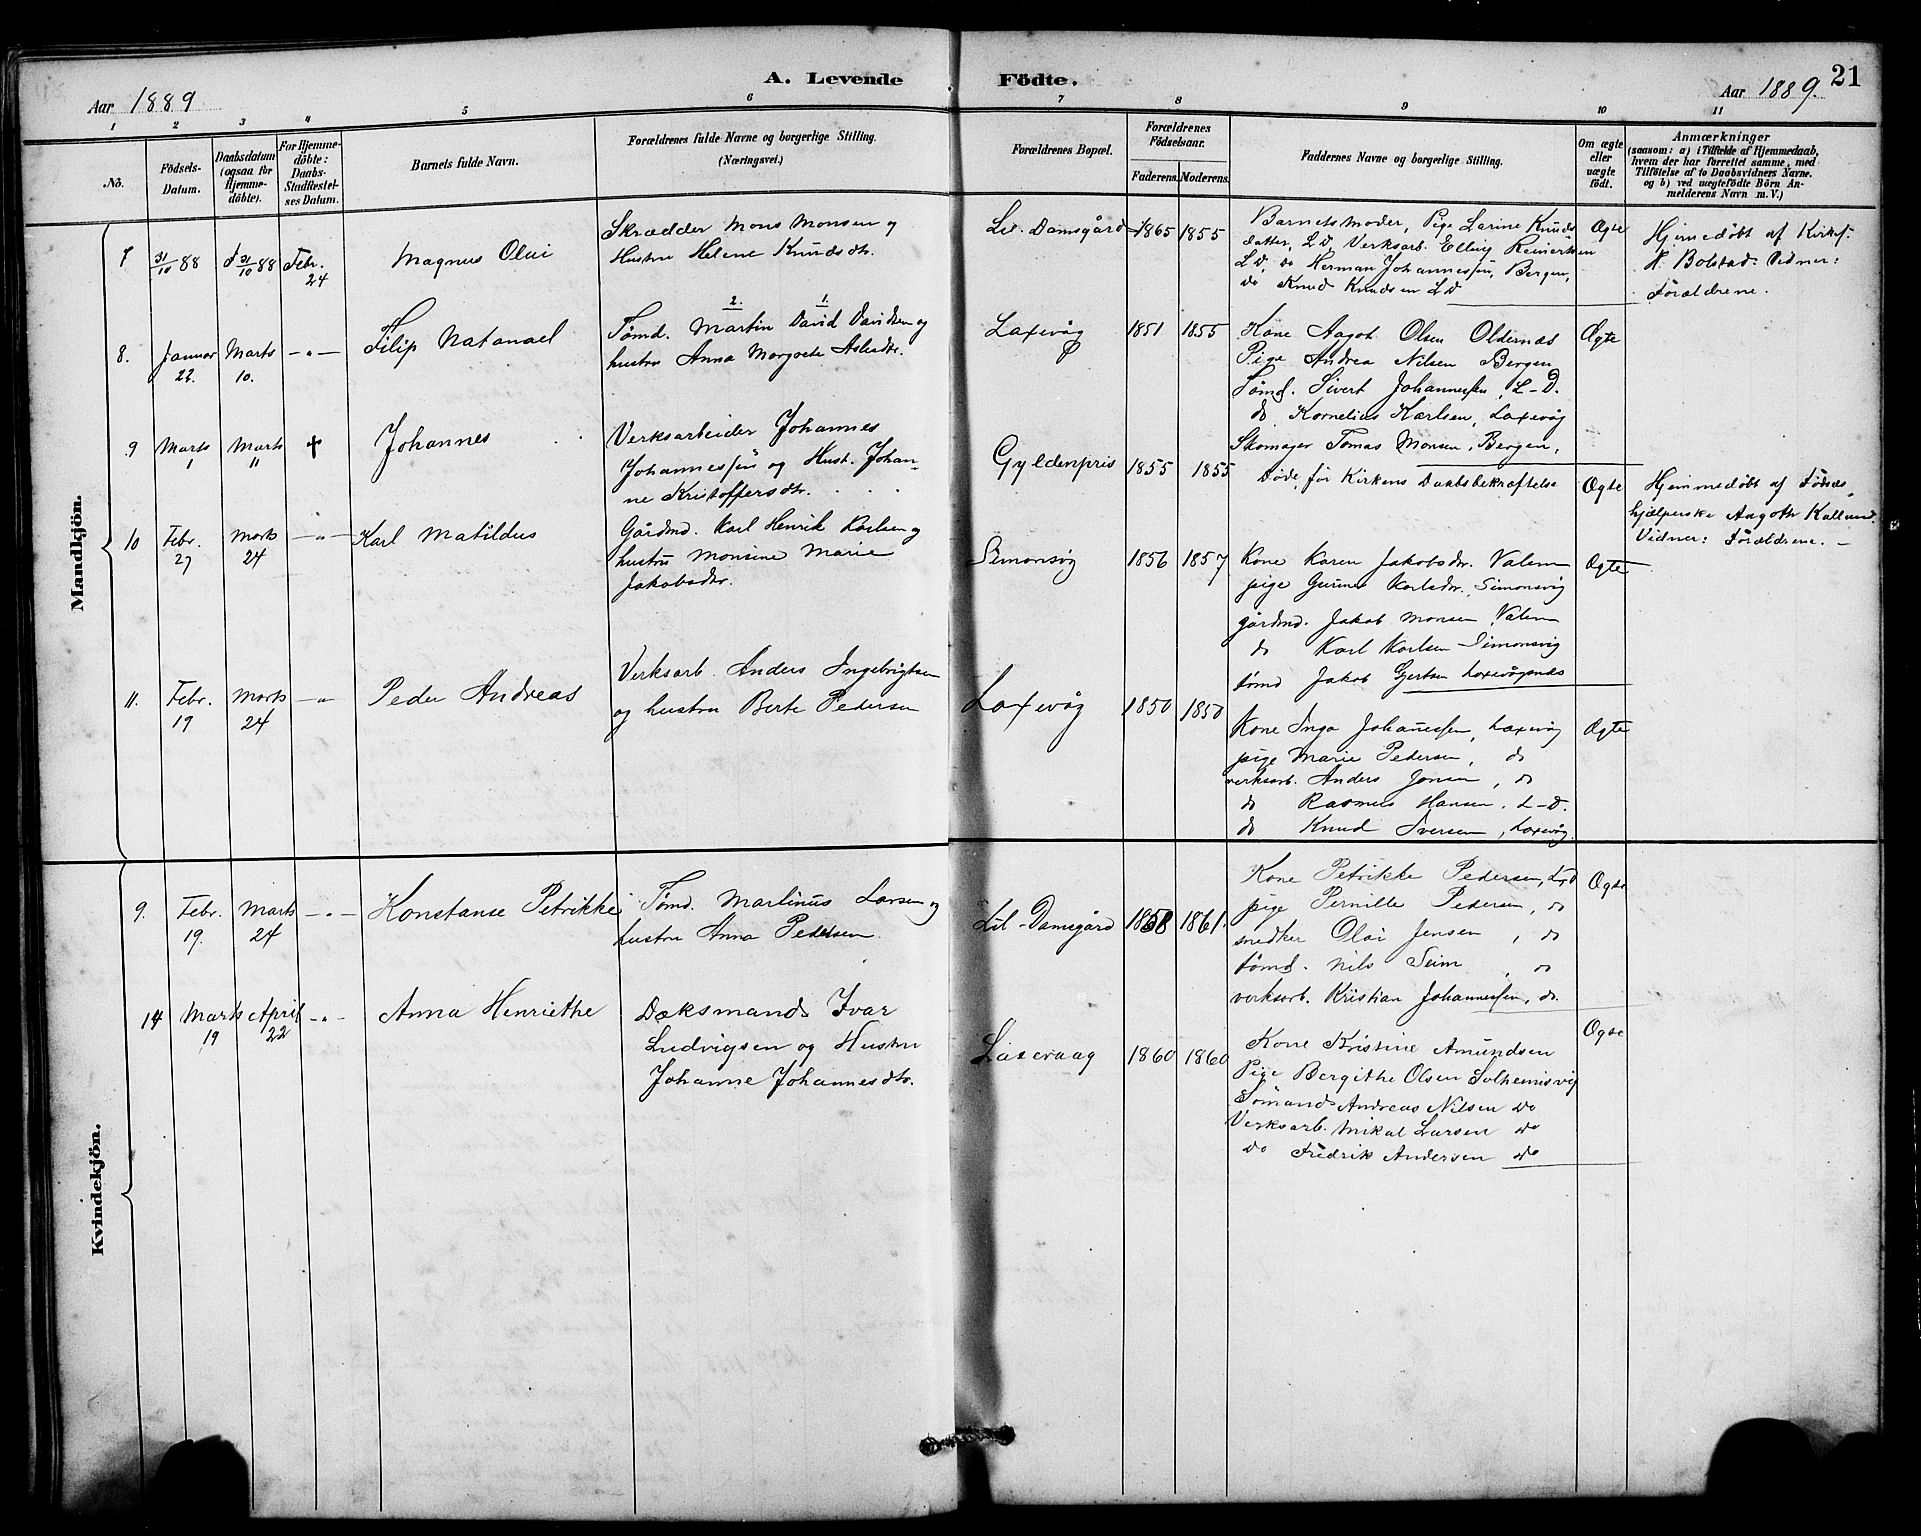 A. Levende Födte.
21
Aar 1889
Aar 1889.
1 2 3 4 5 6 7 8 9 10 11
No.
Födsels-Datum.
Daabsdatum (ogsaa for Hjemmedöbte).
For Hjemmedöbte: Daabs-Stadfæstelses Datum.
Barnets fulde Navn.
Forældrenes fulde Navne og borgerlige Stilling.
(Næringsvei.)
Forældrenes Bopæl.
Forældrenes Födselsaar.
Faderens. Moderens.
Faddernes Navne og borgerlige Stilling.
Om ægte eller uægte födt.
Anmærkninger
(saasom: a) i Tilfælde af Hjemmedaab, hvem der har forrettet samme, med Tilföielse af to Daabsvidners Navne, og b) ved uægtefödte Börn Anmelderens Navn m. V.)
Mandkjön.
7 31/10 88 31/10 88 Febr. 24
Magnus Olai
Skrædder Mons Monsen og
Hustru Helene Knudsdtr.
Lil. Damsgård 1865 1855
Barnets moder, Pige Larine Knuds
datter, L D, Verksarb. Elling Reinertsen
L D, do Herman Johannessen, Bergen,
do Knud Knudsen L D
Ægte
Hjemedøbt af Kirkes.
N. Bolstad. Vidner:
Forældrene.
8. Januar 22. Marts 10. - " -
Filip Natanael
2. 1.
Tømd. Martin David Davidsen og
hustru Anna Margrete Aslaksdtr.
Laxevåg 1851 1855
Kone Aagot Olsen Oldernæs
Pige Andrea Nilsen Bergen
Tømd. Sivert Johannessen, L-D.
do Kornelius Karlsen, Laxevåg
Skomager Tomas Monsen, Bergen,
Ægte
9 Marts 1 Marts 11 †
Johannes
Verksarbeider Johannes
Johannessen og Hust. Johan-
ne Kristoffersdtr.
Gyldenpris 1855 1855
Døde før Kirkens Daabsbekræftelse
Ægte
Hjemmedøbt af Fødsels-
hjælperske Aagoth Kalland.
Vidner: Forældrene. -
10 Febr. 27 Marts 24 - " -
Karl Matildus
Gårdmd. Karl Henrik Karlsen og
hustru Monsine Marie
Jakobsdtr.
Simonsvig 1856 1857
Kone Karen Jakobsdtr. Valem
pige Gurine Karlsdtr. Simonsvig
gårdmd. Jakob Monsen Valem
do Karl Karlsen Simonsvig
tømd Jakob Gjertsen Laxevågsnæs
Ægte
11. Febr. 19 Marts 24 - " -
Peder Andreas
Verksarb. Anders Ingebrigtsen
og hustru Berte Pedersen
Laxevåg 1850 1850
Kone Inga Johannessen, Laxevåg
pige Marie Pedersen, do
verksarb. Anders Jonsen, do
do Rasmus Hansen, L-D.
do Knud Iversen, Laxevåg.
Ægte
Kvindekjön.
9. Febr. 19. Marts 24 - " -
Konstanse Petrikke
Tømd. Martinus Larsen og
hustru Anna Pedersen
Lil-Damsgård 1858 1861.
Kone Petrikke Pedersen, L-D
pige Pernille Pedersen, do
snedker Olai Jensen, do
tømd. Nils Seim, do
verksarb. Kristian Johannessen, do.
Ægte
14 Marts 19 April 22 - " -
Anna Henriethe
Dæksmand Ivar
Ludvigsen og Hustru
Johanne Johannesdtr.
Laxevaag 1860 1860
Kone Kristine Amundsen
Pige Bergithe Olsen Solheimsvig
Sømand Andreas Nilsen do
Verksarb. Mikal Larsen do
do Fredrik Andersen do
Ægte